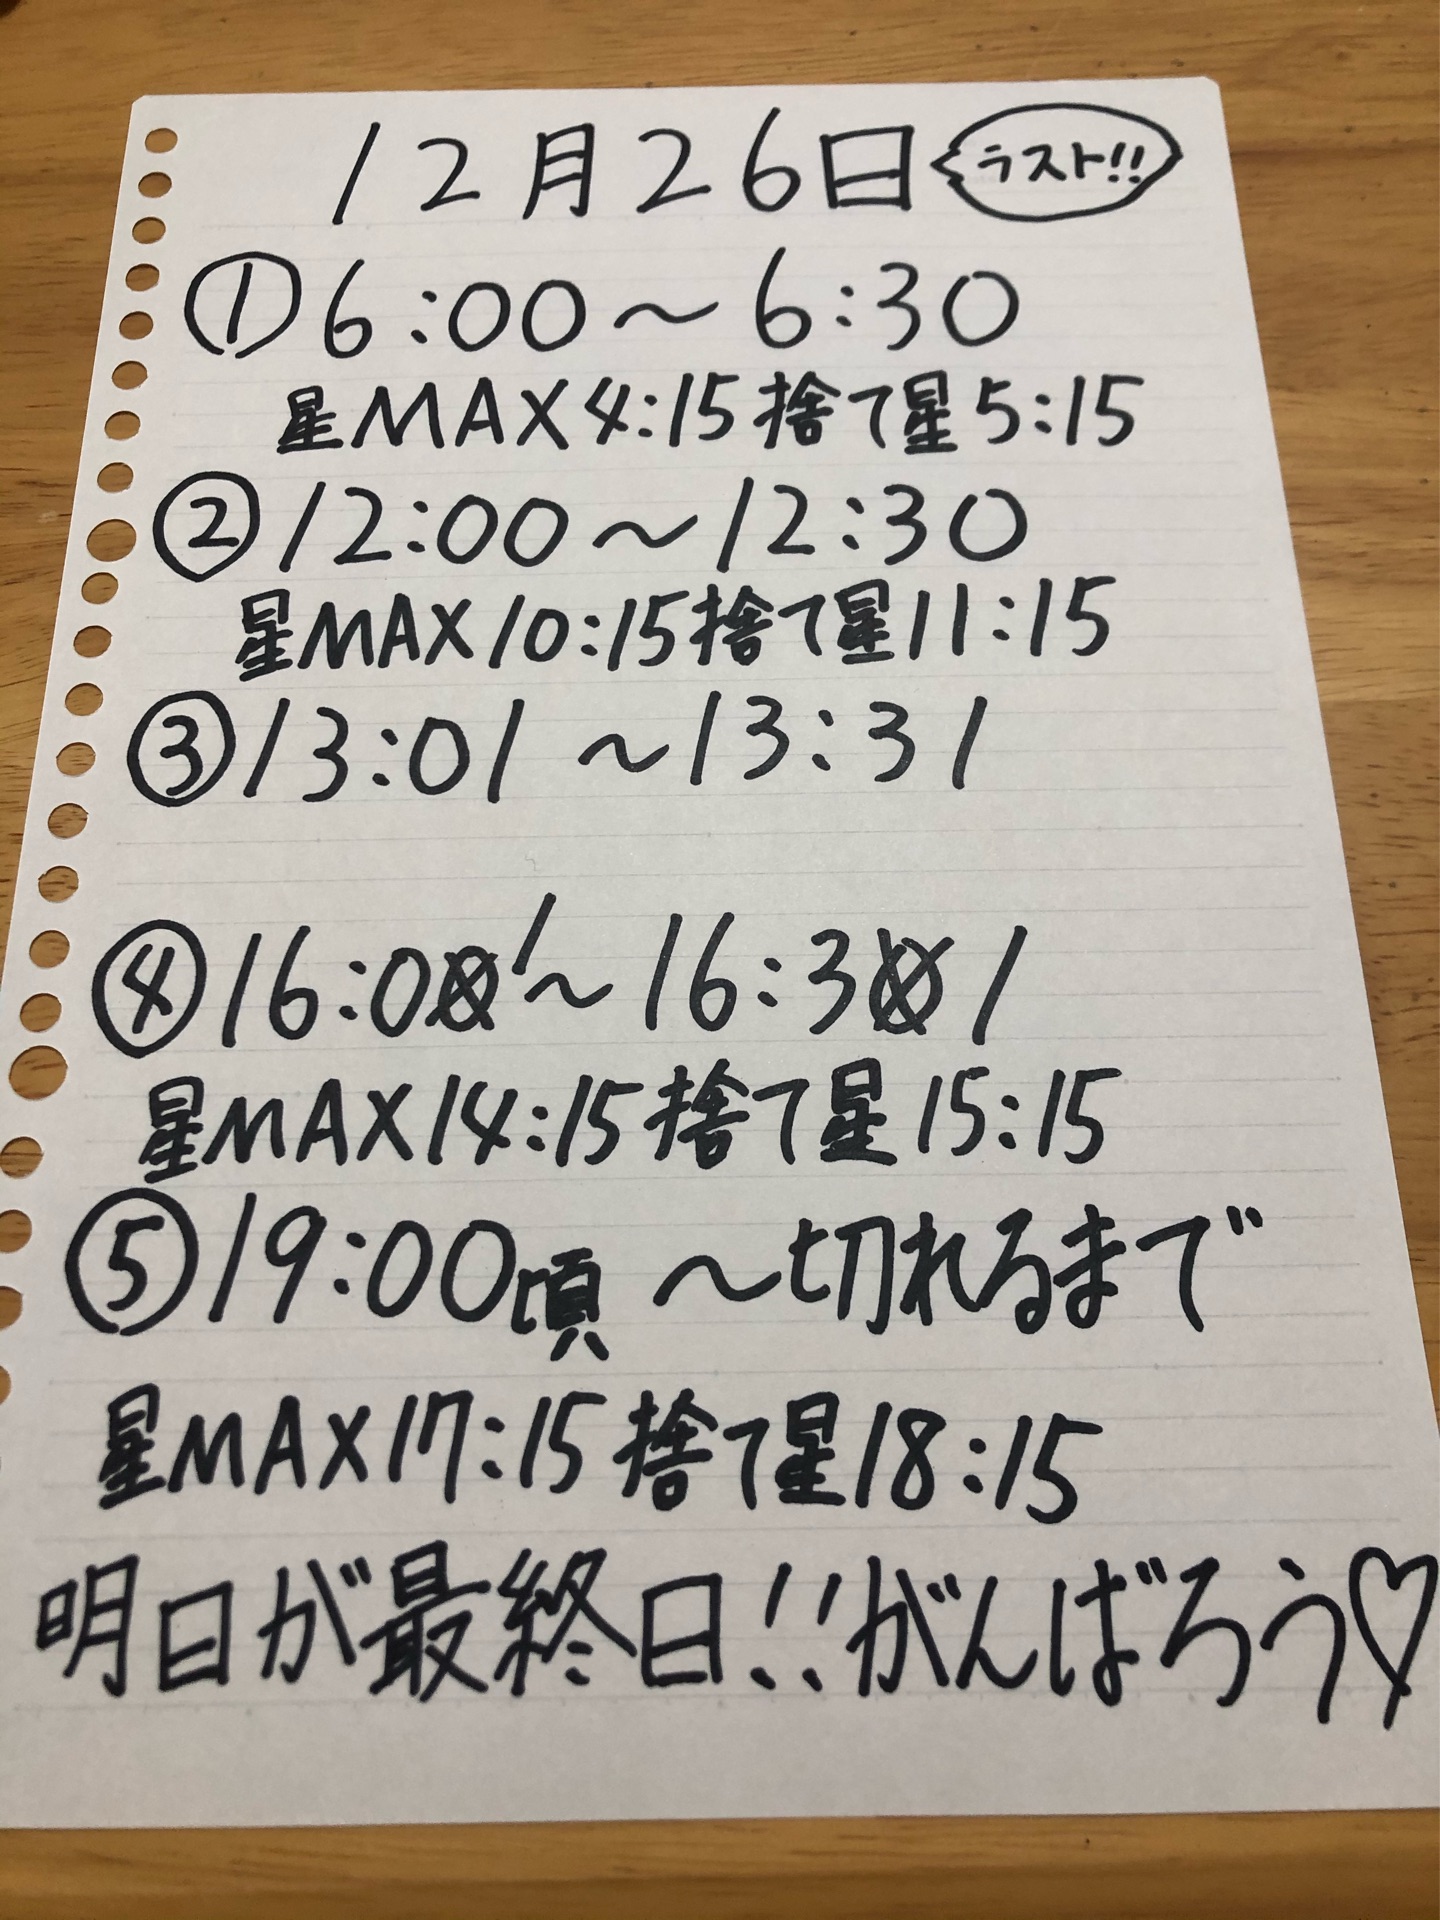 12月26日 ラスト!!
①6:00～6:30
星MAX4:15捨て星5:15
②12:00～12:30
星MAX10:15捨て星11:15
③13:01～13:31
④16:01～16:31
星MAX14:15捨て星15:15
⑤19:00頃～切れるまで
星MAX17:15捨て星18:15
明日が最終日!!がんばろう♡